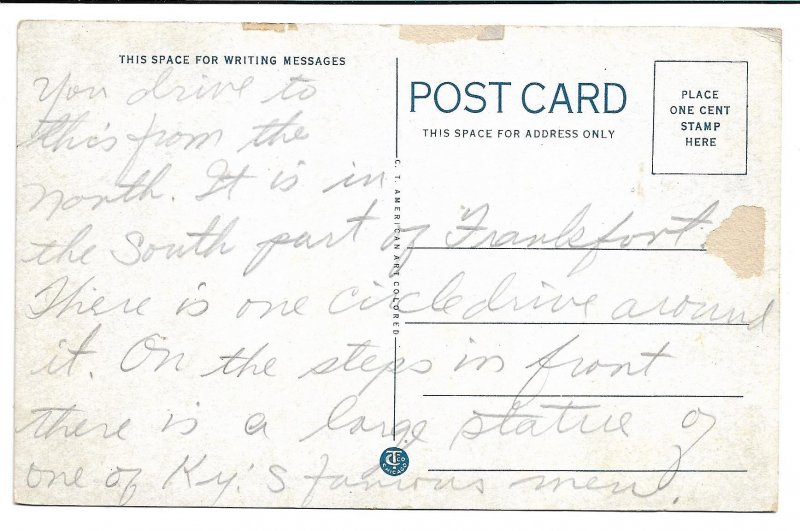 THIS SPACE FOR WRITING MESSAGES
POST CARD
THIS SPACE FOR ADDRESS ONLY
PLACE
ONE CENT
STAMP
HERE
C. T. AMERICAN ART COLORED
You drive to
this from the
north. It is in
the South part of Frankfort.
There is one circle drive around
it. On the steps in front
there is a large statue of
one of Ky.'s famous men.
CT CO
CHICAGO